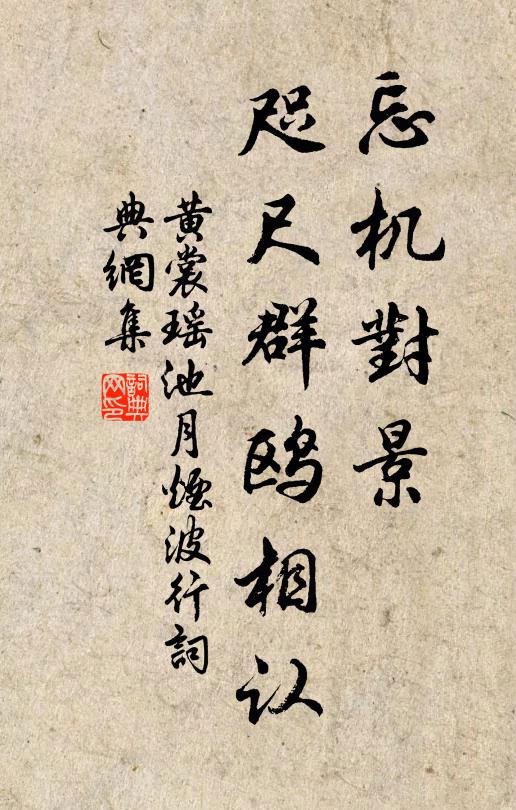 忘机對景
咫尺群鸥相认
黄裳瑶池月煙波行詞
典網集
詞典網印